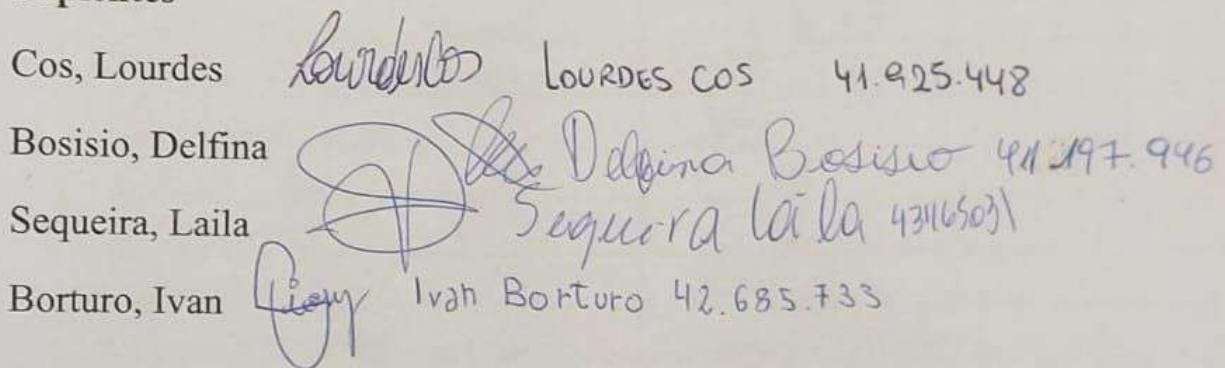 Cos, Lourdes LOURDES COS 41.925.448
Bosisio, Delfina Delfina Bosisio 41.197.946
Sequeira, Laila Sequeira Laila 43165031
Borturo, Ivan Ivan Borturo 42.685.733